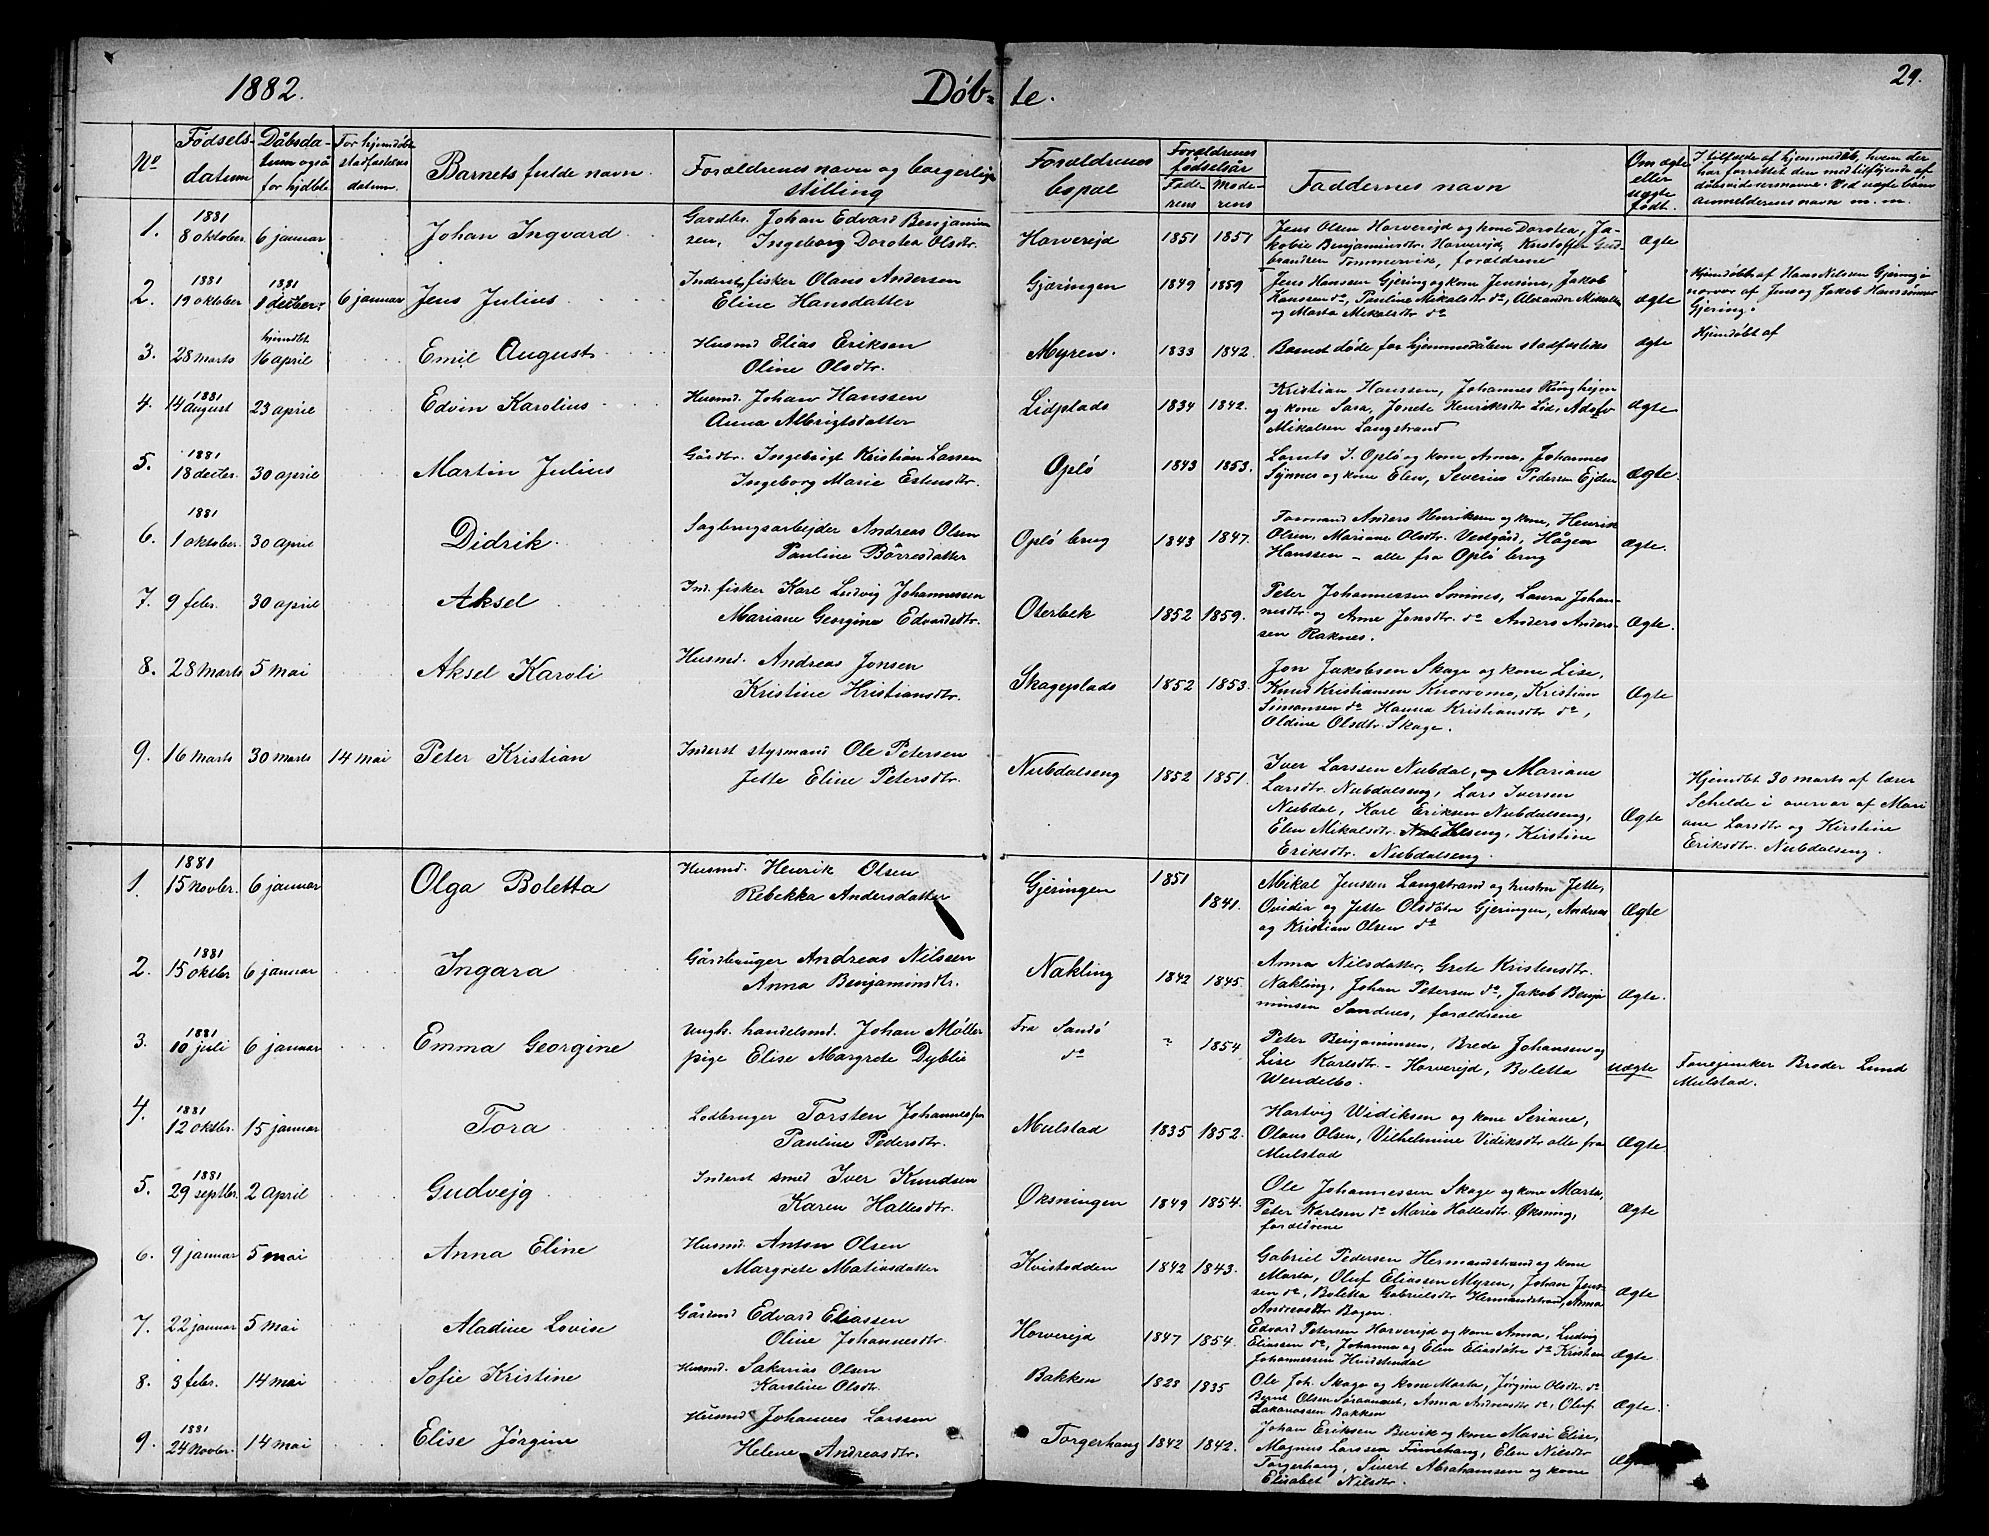 1882. Døb=te. 29.
No Fødsels-datum Dåbsda-tum også for hjdbte For hjemdøbte stadfæstelses datum. Barnets fulde navn. Forældrenes navn og borgerlige stilling Forældrenes bopæl Forældrenes fødselsår Fade-rens Mode-rens Faddernes navn Om ægte eller uægte født. I tilfælde af hjemmedåb, hvem der har forrettet den med tilføjende af dåbsvidnernes navne. Ved uægte børn anmelderens navn m. m.
1. 1881 8 oktober. 6 januar Johan Ingvard Gårdbr. Johan Edvard Benjamin
sen, Ingeborg Dorotea Olsdtr. Horverejd 1851 1857 Jens Olsen Horverejd og kone Dorotea, Ja-
kobie Benjaminsdtr. Horverejd, Kristoffer Gud
brandsen Tommervik, forældrene Ægte
2. 1881 19 oktober 1881 8 decber. 6 januar Jens Julius Inderst, fisker Olaus Andersen
Eline Hansdatter Gjæringen 1849 1859 Jens Hanssen Gjering og kone Jensine, Jakob
Hanssen do, Pauline Mikalsdtr do, Alexander Mikalsen
og Marta Mikalsdtr do Ægte Hjemdøbt af Hans Nilssen Gjering i
nærvær af Jens og Jakob Hanssønner
Gjering.
3. 28 marts hjemdbt. 16 april Emil August Husmd Elias Eriksen
Oline Olsdtr. Myren. 1833 1842. Barnet døde før hjemmedåben stadfæstedes Ægte Hjemdøbt af
4. 1881 14 august 23 april Edvin Karolius Husmd. Johan Hanssen
Anna Albrigtsdatter Lidplads 1834 1842. Kristian Hanssen, Johannes Ringhejm
og kone Sara, Jonete Henriksdtr Lid, Adolf
Mikalsen Langstrand Ægte
5. 1881 18 decbr. 30 april Martin Julius Gårdbr. Ingebrigt Kristian Larsen
Ingeborg Marie Estensdtr. Oplø 1843 1853. Lornts I. Oplø og kone Anne, Johannes
Synnes og kone Elen, Severius Pedersen Ejden Ægte.
6. 1881 1 oktober. 30 april Didrik Sagbrugsarbejder Andreas Olsen
Pauline Børresdatter Oplø brug 1843 1847. Formand Anders Henriksen og kone, Henrik
Olsen, Mariane Olsdtr. Vedgård, Hågen
Hanssen - alle fra Oplø brug Ægte.
7. 9 febr. 30 april Aksel Ind. fisker Karl Ludvig Johannessen
Mariane Georgina Edvardsdtr. Oterbek 1852 1859. Peter Johannessen Sømnes, Laura Johan-
nesdtr og Anne Jonsdtr. do Anders Anders-
sen Raknes. Ægte.
8. 28 marts 5 mai Aksel Karoli Husmd. Andreas Jonsen
Kristine Kristiansdtr. Skageplads 1852 1853. Jon Jakobsen Skage og kone Lise,
Knud Kristiansen Knorromo, Kristian
Simonsen do Hanna Kristiansdtr do,
Oldine Olsdtr. Skage. Ægte
9. 16 marts 30 marts 14 mai Peter Kristian Inderst styrmand Ole Petersen
Jette Eline Petersdtr. Nubdalseng 1852 1851. Iver Larssen Nubdal, og Mariane
Larsdtr. Nubdalseng, Lars Iversen
Nubdal, Karl Eriksen Nubdalseng,
Elen Mikalsdtr. Heseng, Kirstine
Eriksdtr. Nubdalseng. Ægte Hjemdbt 30 marts af lærer
Schelde i overvær af Mari
ane Larsdtr og Kirstine
Eriksdtr. Nubdalseng.
1. 1881 15 novbr. 6 januar Olga Boletta Husmd. Henrik Olsen
Rebekka Andersdatter Gjeringen 1851 1841. Mikal Jenssen Langstrand og hustru Jette,
Ovidia og Jette Olsdøtre Gjeringen, Andreas
og Kristian Olsen do Ægte
2. 1881 15 oktbr. 6 januar Ingara Gårdbruger Andreas Nilssen
Anna Benjaminsdtr. Nakling 1842 1845. Anna Nilsdatter, Grete Kristensdtr.
Nakling, Johan Petersen do, Jakob Benja
minsen Sandnes, forældrene Ægte.
3. 1881 10 juli 6 januar Emma Georgine Ungk. handelsmd. Johan Møller
pige Elise Margrete Dybliø Fra Sandø
do " 1854. Peter Benjaminsen, Brede Johansen og
Lise Karlsdtr. - Horverejd, Boletta
Wendelbo. Uægte Fanejunker Broder Lund
Mulstad.
4. 1881 12 oktbr. 15 januar Tora Lodbruger Torsten Johannesen
Pauline Pedersdtr. Mulstad 1835 1852. Hartvig Widiksen og kone Seriane,
Olaus Olsen, Vilhelmine Vidiksdtr alle fra
Mulstad Ægte
5. 1881 29 septbr. 2 april Gudvejg Inderst smed Iver Knudsen
Karen Hallesdtr. Øksningen 1849 1854. Ole Johannessen Skage og kone Marta,
Peter Karlsen do Marie Hallesdtr. Øksning,
forældrene Ægte
6. 9 januar 5 mai Anna Eline Husmd. Anton Olsen
Margrete Matiasdatter Kvistodden 1842 1843. Gabriel Pedersen Hermandstrand og kone
Marta, Oluf Eliassen Myren, Johan Jens-
sen do, Boletta Gabrielsdtr Hermandstrand, Anna
Andreasdtr Bogen. Ægte
7. 22 januar 5 mai Aladine Lovise Gårdmd Edvard Eliassen
Oline Johannesdtr. Horverejd 1847 1854. Edvard Petersen Horverejd og kone Anna, Ludvig
Eliassen do, Johanna og Elen Eliasdøtre do Kristian
Johannessen Heidstendal Ægte
8. 3 febr. 14 mai Sofie Kristine Husmd. Sakarias Olsen
Karoline Olsdtr. Bakken 1828 1835 Ole Joh. Skage og kone Marta, Jørgine Olsdtr. do
Bernt Olsen Søraunet, Anna Andreasdtr do, Oluf
Zakariassen Bakken Ægte.
9. 1881 24 novbr. 14 mai Elise Jørgine Husmd Johannes Larssen
Helene Andreasdtr. Torgerhaug 1842 1842. Johan Eriksen Buvik og kone Massi Elise,
Magnus Larssen Finnehaug, Elen Nilsdtr
Torgerhaug, Sivert Abrahamsen og kone
Elisabet Nilsdtr. Ægte